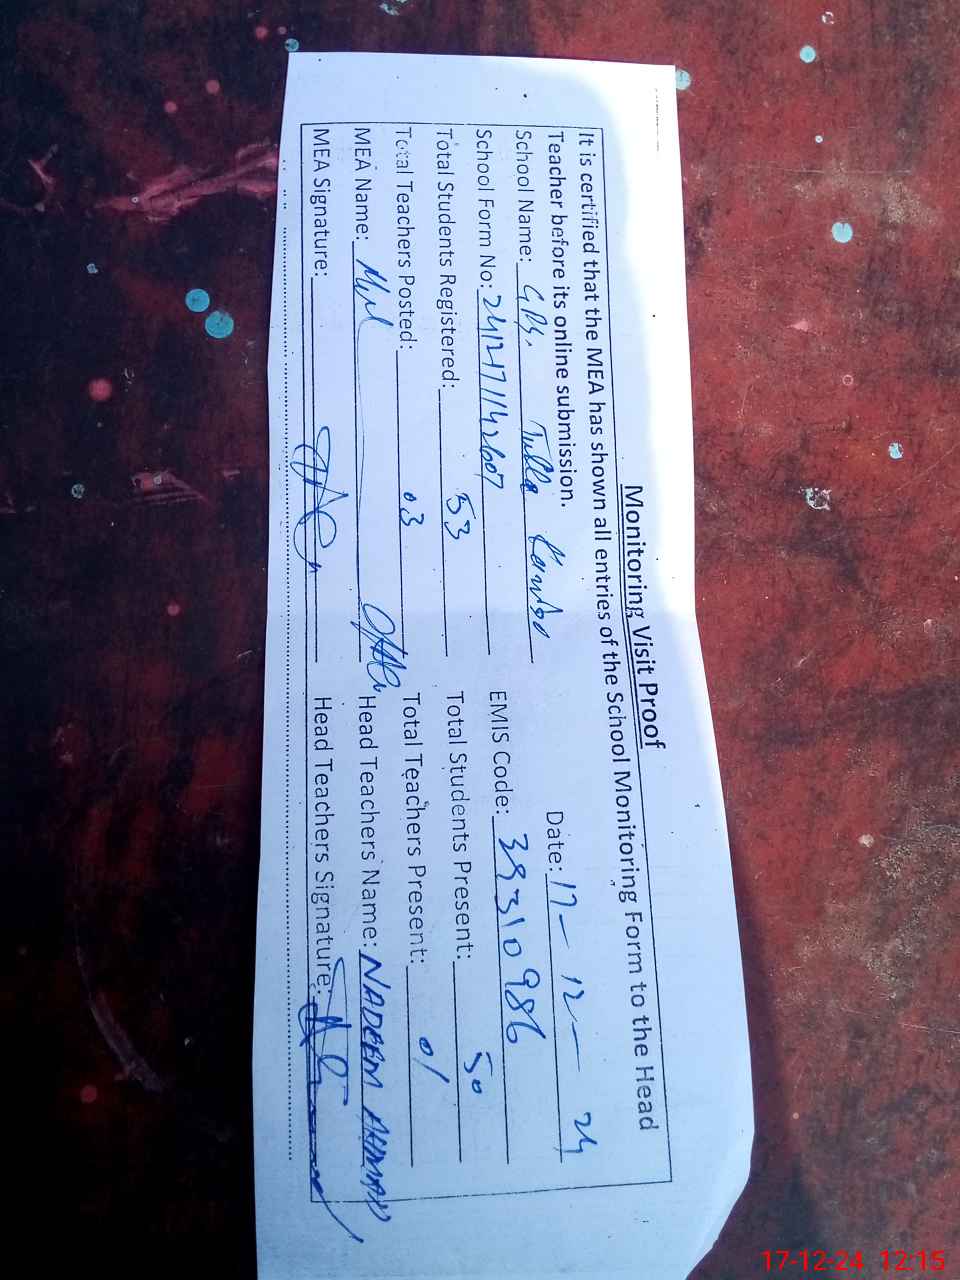 Monitoring Visit Proof
It is certified that the MEA has shown all entries of the School Monitoring Form to the Head
Teacher before its online submission.
Date: 17-12-24
School Name: GPS, Tulla
School Form No: EMIS Code: 38310986
Total Students Registered: 53 Total Students Present: 50
Total Teachers Posted: 03 Total Teachers Present: 01
MEA Name: Head Teachers Name: NADEEM AHMAD
MEA Signature: Head Teachers Signature:
17-12-24 12:15